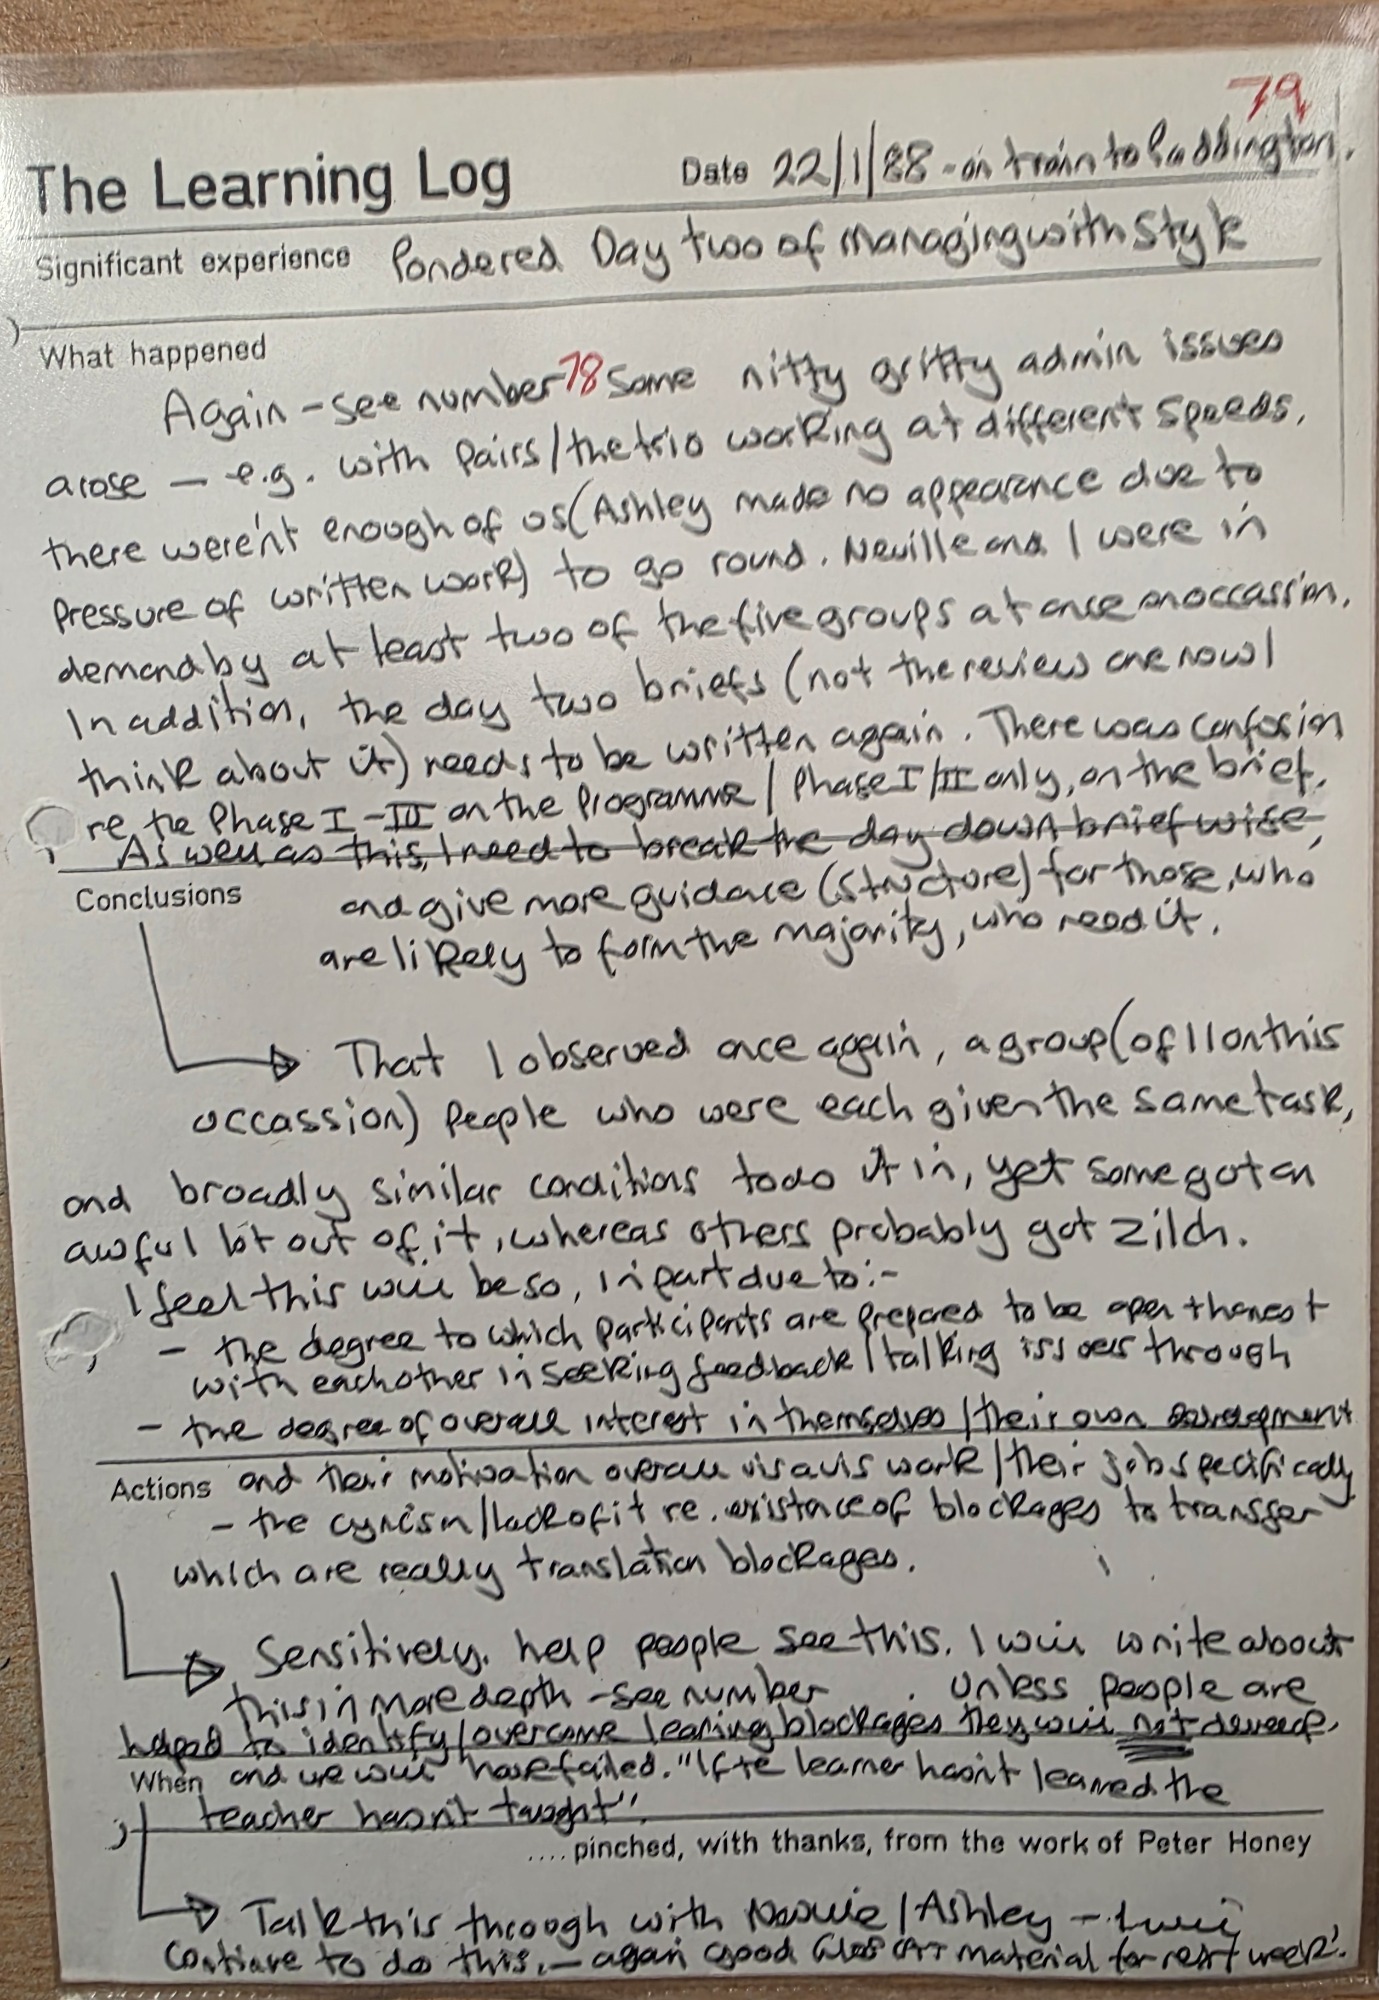 79
The Learning Log
Date 22/1/88 - on train to Paddington.
Significant experience Pondered Day two of managing with Style
What happened
Again - see number 78 some nitty gritty admin issues
arose - e.g. with pairs/the trio working at different speeds,
there weren't enough of us (Ashley made no appearance due to
pressure of written work) to go round. Neville and I were in
demand by at least two of the five groups at once on occassion.
In addition, the day two briefs (not the review one now I
think about it) needs to be written again. There was confusion
re the Phase I - III on the Programme / Phase I/II only, on the brief.
As well as this, I need to break the day down brief wise,
Conclusions
and give more guidance (structure) for those, who
are likely to form the majority, who need it.
That I observed once again, a group (of 11 on this
occassion) people who were each given the same task,
and broadly similar conditions to do it in, yet some got an
awful lot out of it, whereas others probably got zilch.
I feel this will be so, in part due to:-
- the degree to which participants are prepared to be open + honest
with each other in seeking feedback / talking issues through
- the degree of overall interest in themselves / their own development
Actions and their motivation overall vis a vis work / their job specifically
- the cynicism / lack of it re. existance of blockages to transfer
which are really translation blockages.
Sensitively, help people see this. I will write about
this in more depth - see number . Unless people are
helped to identify / overcome learning blockages they will not develop,
When and we will have failed. "If the learner hasn't learned the
teacher hasn't taught".
.... pinched, with thanks, from the work of Peter Honey
Talk this through with Neville / Ashley - I will
continue to do this. - again good material for next week!